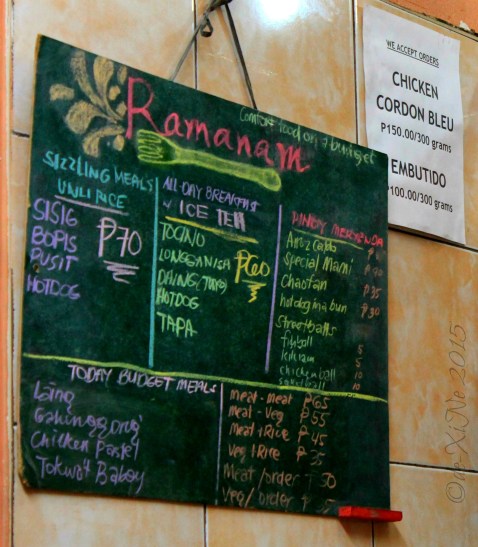 Ramanam
Comfort food on a budget
SIZZLING MEALS
UNLI RICE
SISIG
BOPIS
PUSIT
HOTDOG
₱70
ALL-DAY BREAKFAST
✓ ICE TEA
TOCINO
LONGGANISA
DAING (TUYO)
HOTDOG
TAPA
₱60
PINOY MERIENDA
Arroz caldo
Special Mami
Chaofan ₱35
hotdog in a bun ₱30
Streetballs
fishball
kikiam 5
chickenball 10
squidball 10
TODAY BUDGET MEALS
Laing
Chicken Pastel
Tokwa't Baboy
meat-meat ₱65
meat-veg ₱55
Meat+Rice ₱45
Veg+Rice ₱35
Meat/order ₱30
Veg/order
WE ACCEPT ORDERS
CHICKEN
CORDON BLEU
₱150.00/300 grams
EMBUTIDO
₱100.00/300 grams
©meXiNe 2015